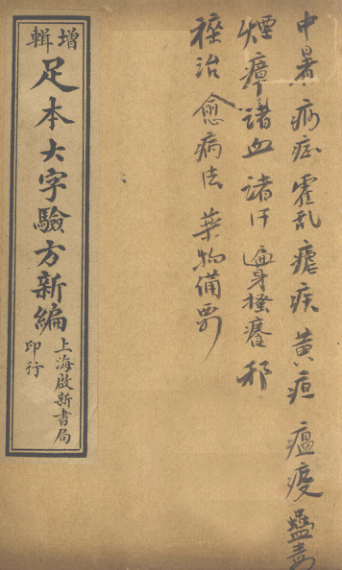 中暑 痧症 霍乱 瘧疾 黄疸 瘟疫 蠱毒
煙瘴 諸血 諸汗 遍身搔癢 邪
襍治 愈病法 藥物備要
增輯
足本大字驗方新編
上海啟新書局
印行